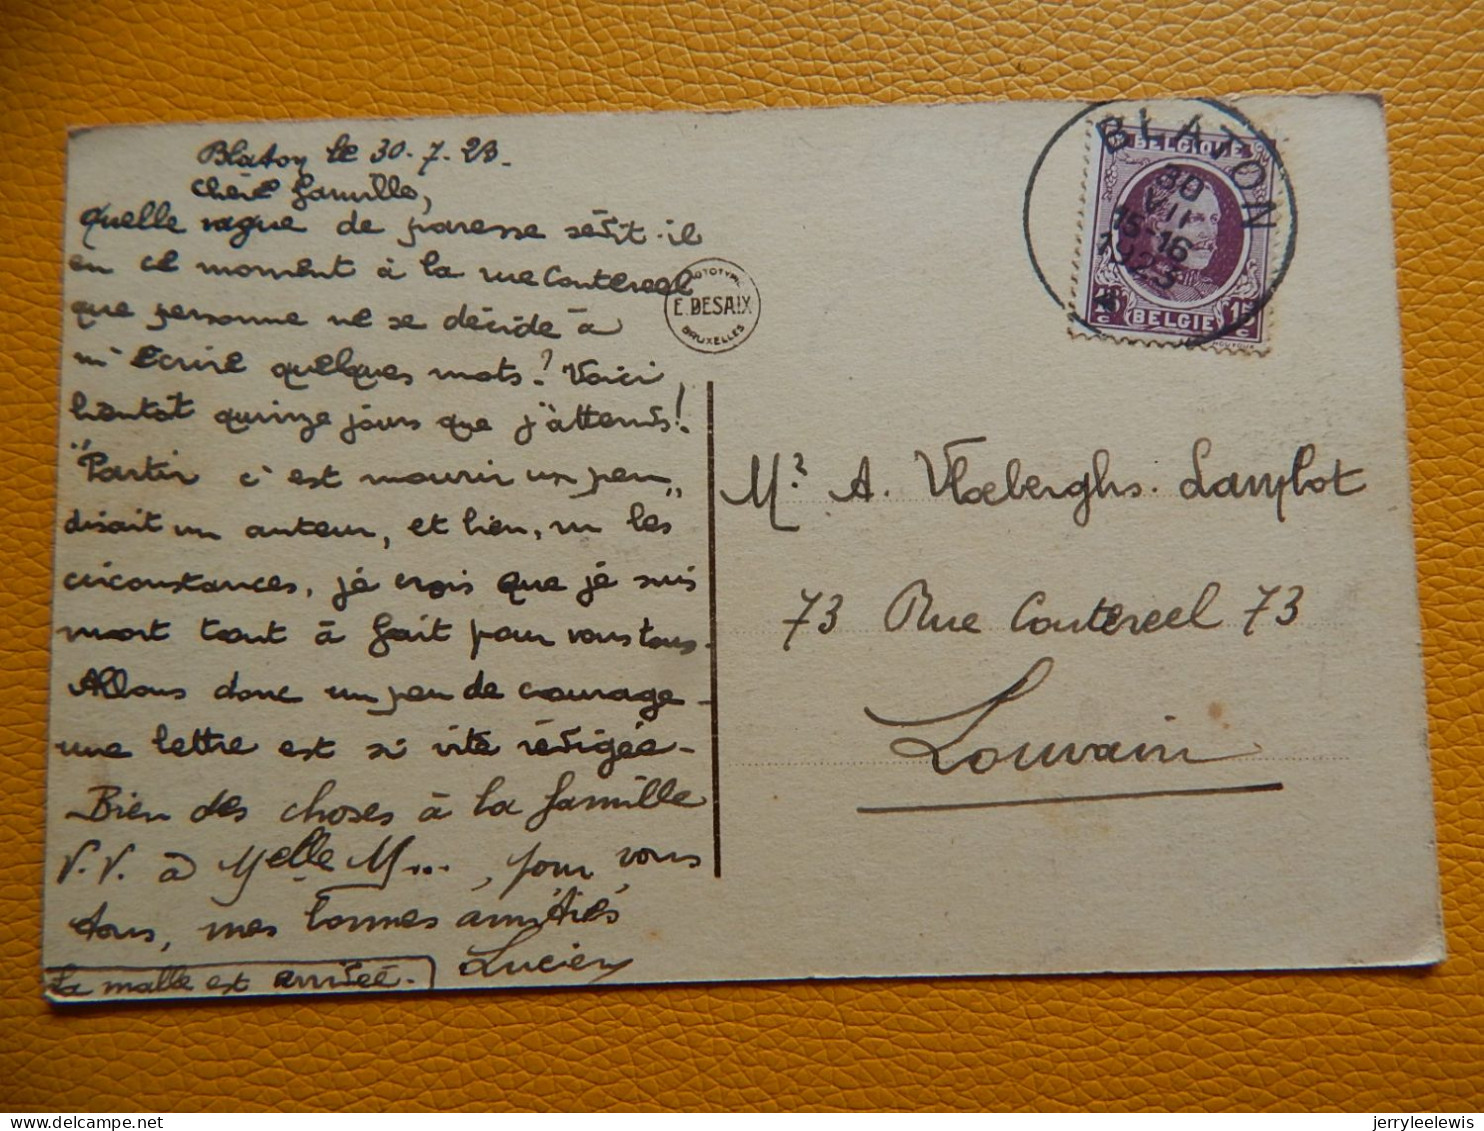 Blaton le 30.7.23.
Chère famille,
Quelle vague de paresse sévit-il
en ce moment à la rue Coutereel
que personne ne se décide à
m'écrire quelques mots? Voici
bientôt quinze jours que j'attends!
"Partir c'est mourir un peu"
disait un auteur, et bien, vu les
circonstances, je crois que je suis
mort tout à fait pour vous tous.
Allons donc un peu de courage -
une lettre est si vite rédigée -
Bien des choses à la famille
V.V. à Melle M..., pour vous
tous, mes bonnes amitiés
Lucien
La malle est arrivée.
PHOTOTYPIE
E. DESAIX
BRUXELLES
BLATON
30
VII
15-16
1923
BELGIQUE
15 c 15 c
BELGIE
Mr A. Vloeberghs-Lambot
73 Rue Coutereel 73
Louvain
jerryleelewis